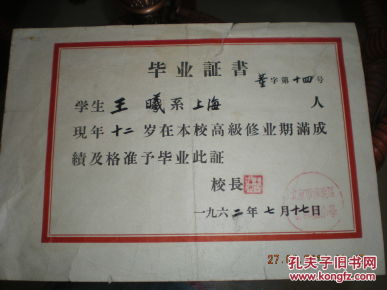 毕业証書
字第十四号
学生王曦系上海人
現年十二岁在本校高級修业期滿成
績及格准予毕业此証
校長
一九六二年七月十七日
27.0
孔夫子旧书网